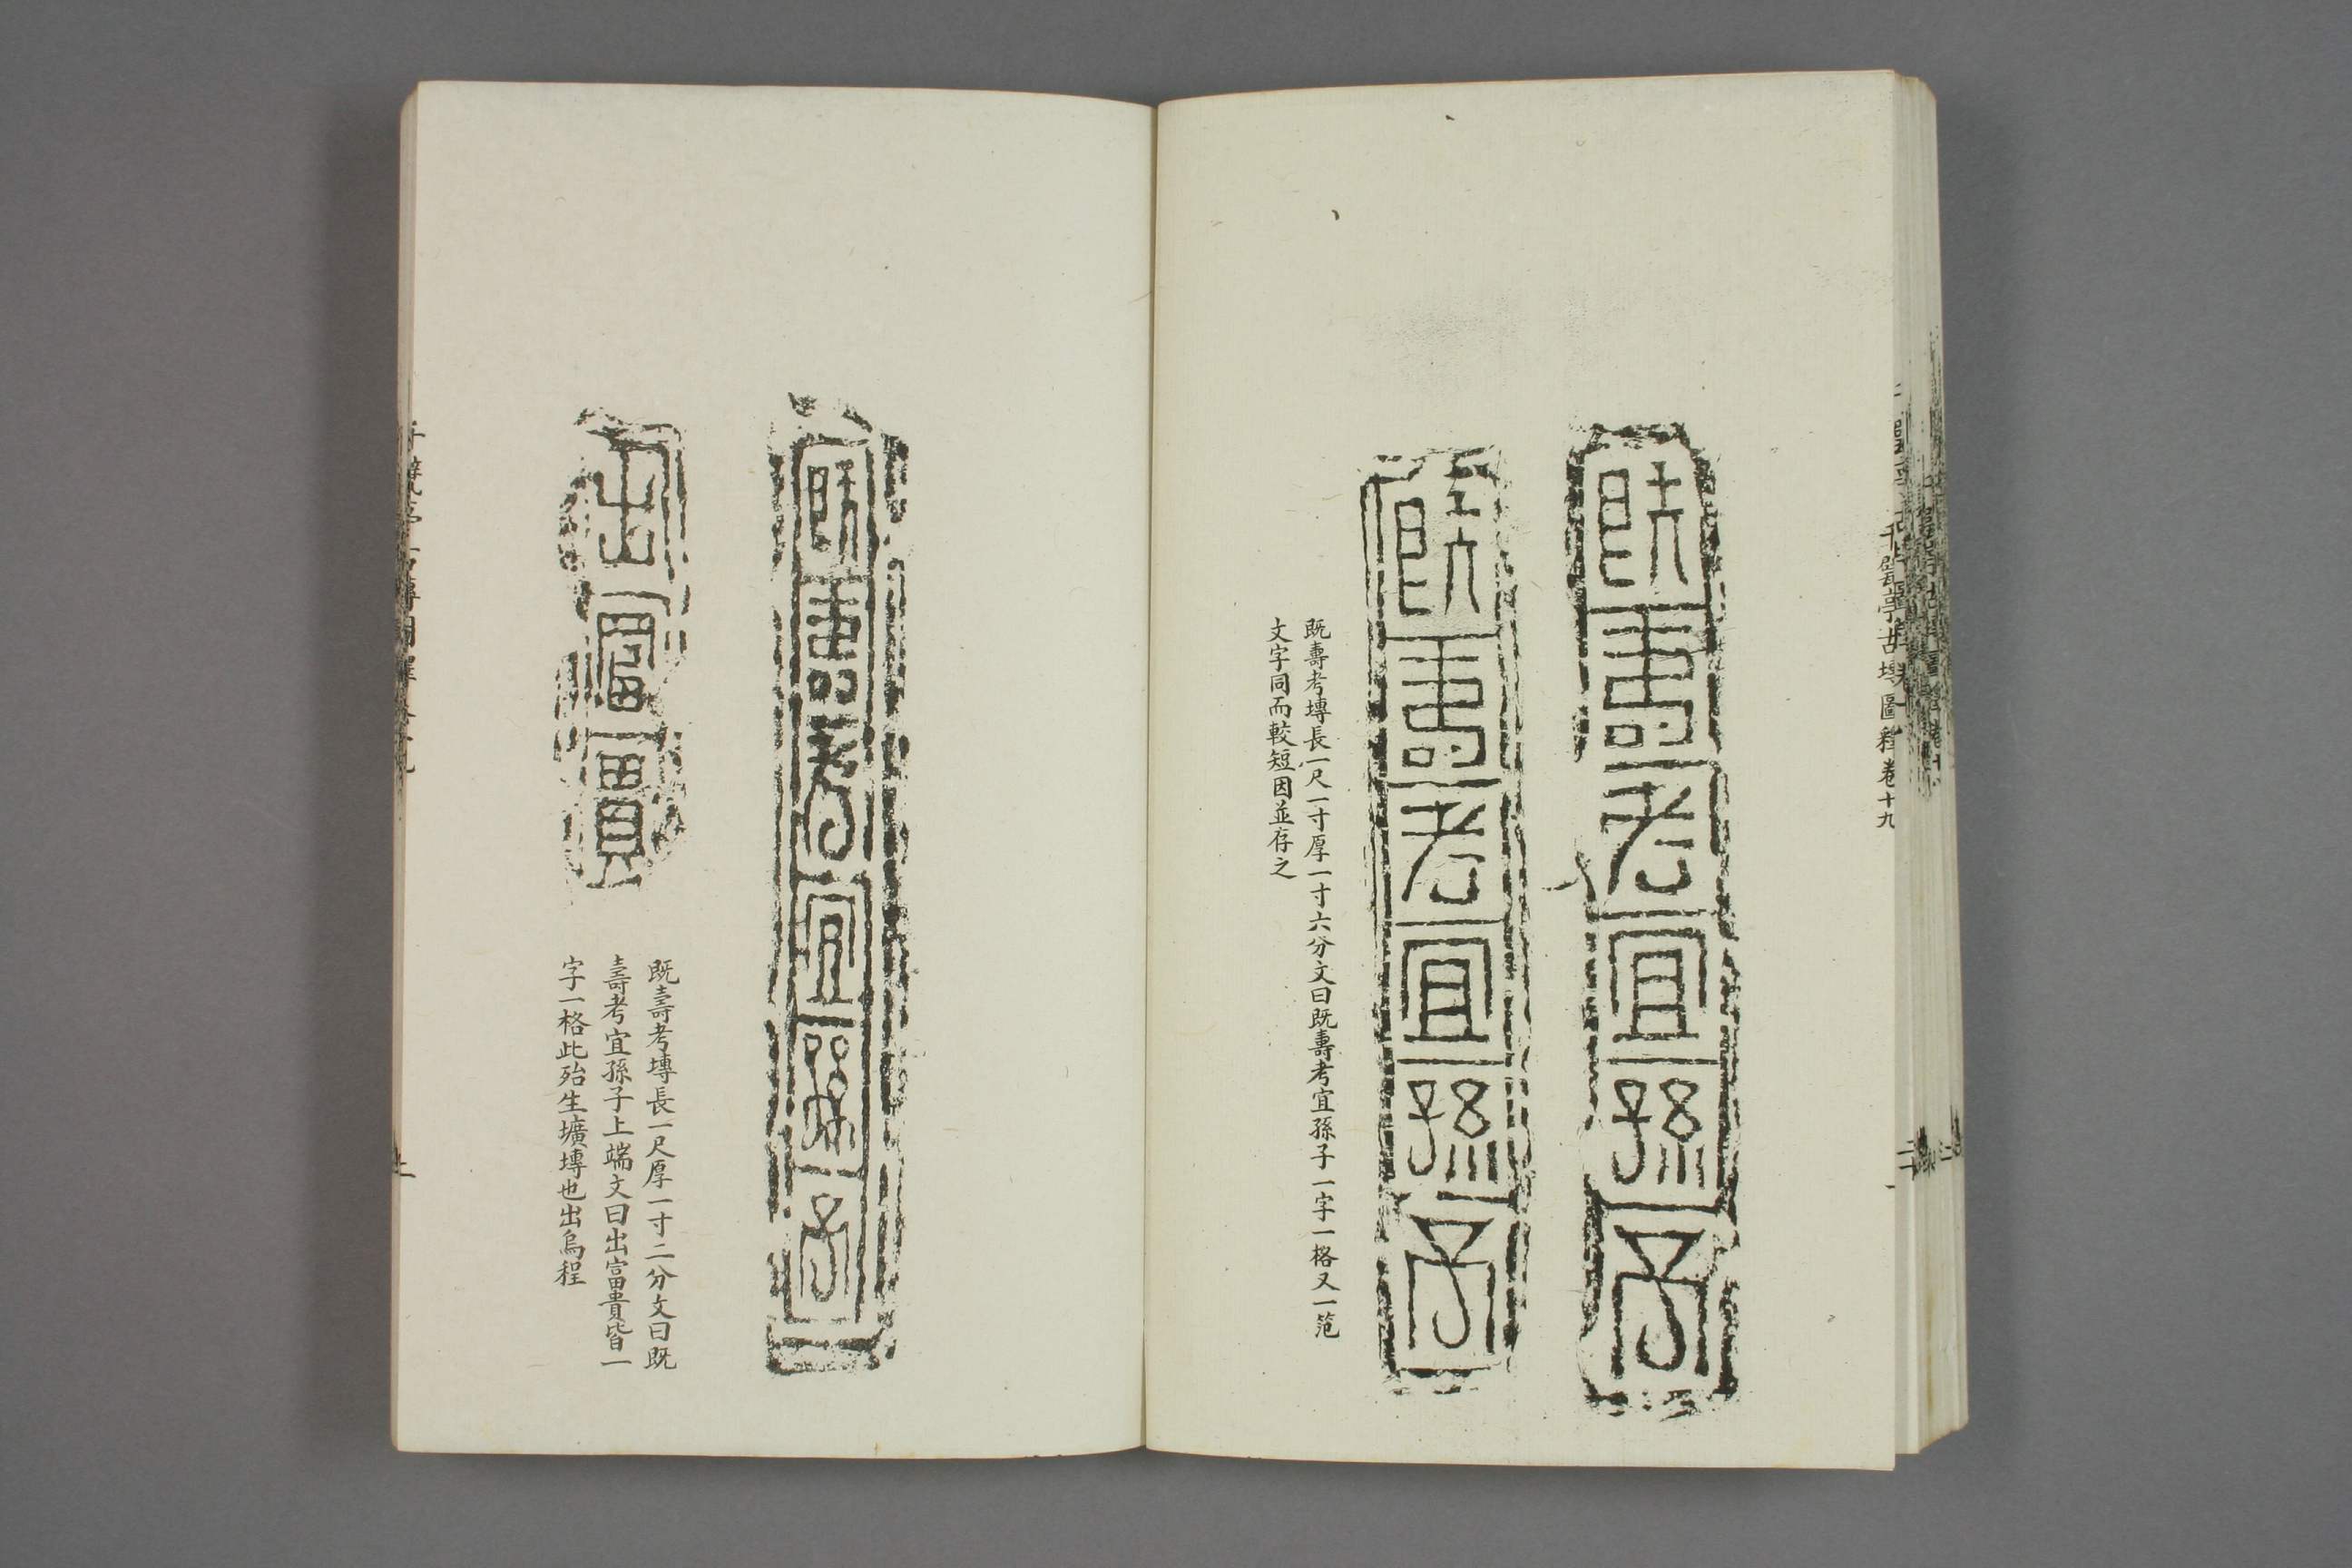 千甓亭古塼圖釋卷十九
既壽考宜孫子
既壽考宜孫子
既壽考塼長一尺一寸厚一寸六分文曰既壽考宜孫子一字一格又一范
文字同而較短因並存之
既壽考宜孫子
出富貴
既壽考塼長一尺厚一寸二分文曰既
壽考宜孫子上端文曰出富貴皆一
字一格此殆生壙塼也出烏程